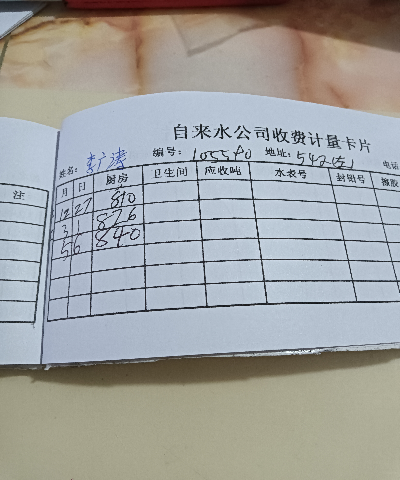 自来水公司收费计量卡片
姓名: 李广涛 编号: 105540 地址: 542左1 电话
注 月 日 厨房 卫生间 应收吨 水表号 封铅号
12 27 810
3 1 826
5 6 840